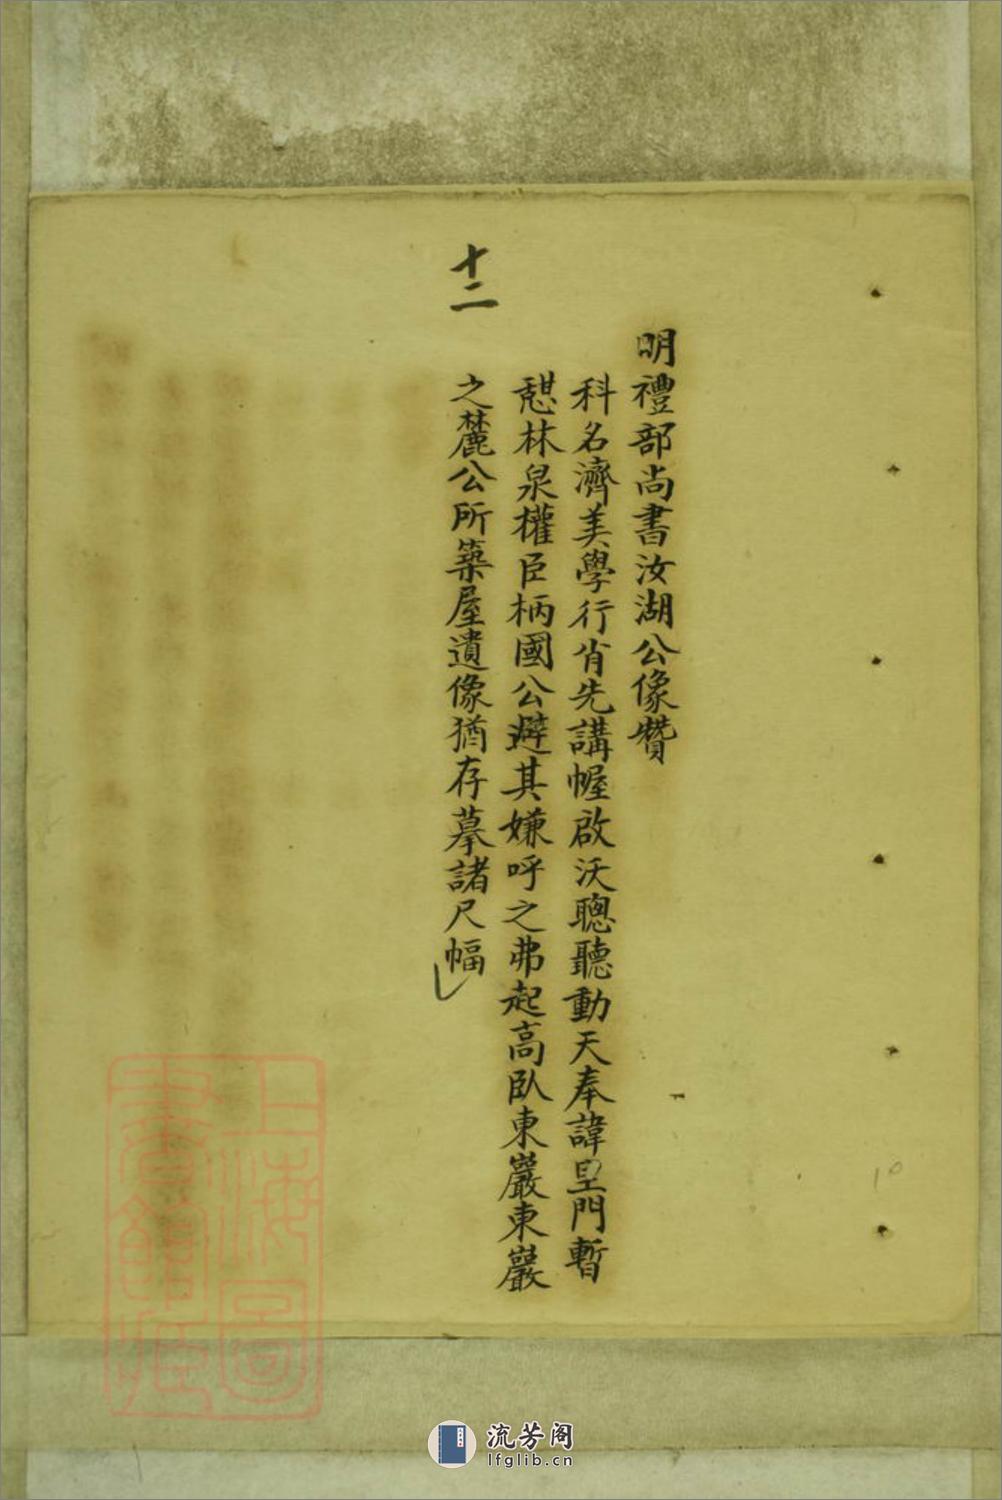 明禮部尚書汝湖公像贊
科名濟美學行肖先講幄啟沃聰聽動天奉諱皇門暫
憇林泉權臣柄國公避其嫌呼之弗起高臥東巖東巖
之麓公所築屋遺像猶存摹諸尺幅
十二
10
上海圖
書館藏
流芳阁
lfglib.cn